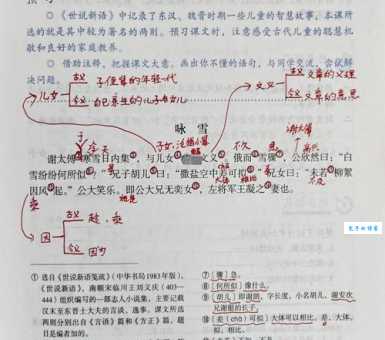 〇《世说新语》中记录了东汉、魏晋时期一些儿童的智慧故事。本课所
选的就是其中较为著名的两则。预习课文时，注意感受古代儿童的聪慧机
敏和良好的家庭教养。
〇 借助注释，把握课文大意，画出你不懂的语句，与同学交流，尝试解
决问题。
古义 子侄辈的年轻一代
儿女
今义 自己亲生的儿子和女儿
古义 文章的义理
文义
今义 文章的意思
咏 雪
谢太傅寒雪日内集，与儿女文义。俄而雪骤，公欣然曰："白
雪纷纷何所似？"兄子胡儿曰："撒盐空中差可拟。"兄女曰："未若柳絮
因风起。"公大笑乐。即公大兄无奕女，左将军王凝之妻也。
因
古义 趁、乘
今义 因为
① 选自《世说新语笺疏》（中华书局1983年版）。
《世说新语》，南朝宋临川王刘义庆（403—
444）组织编写的一部志人小说集，主要记载
汉末至东晋士大夫的言谈、逸事。课文所选
两则分别出自《言语》篇和《方正》篇。题
目是编者加的。
⑦〔骤〕急。
⑧〔何所似〕像什么。
⑨〔胡儿〕即谢朗，字长度，小名胡儿，谢安次
兄谢据的长子。
⑩〔差（chā）可拟〕大体可以相比。差，大体。
拟，相比。